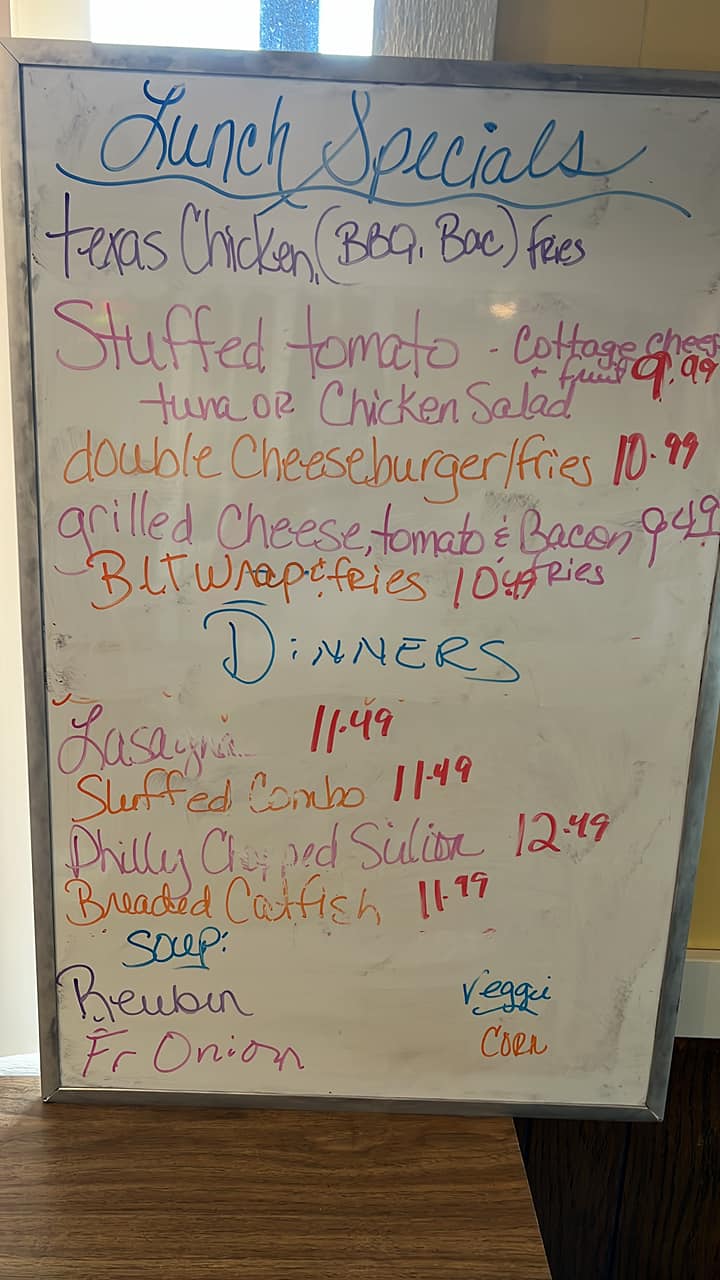 Lunch Specials
Texas Chicken, (BBQ, Bac) Fries
Stuffed tomato - Cottage chees
+ fruit 9.99
tuna OR Chicken Salad
double Cheeseburger/fries 10.99
grilled Cheese, tomato & Bacon 9.49
Fries
BLT Wrap & fries 10.49
DINNERS
Lasagna 11.49
Stuffed Combo 11.49
Philly Chopped Sirlion 12.49
Breaded Catfish 11.99
Soup:
Reuben Veggie
Fr Onion Corn